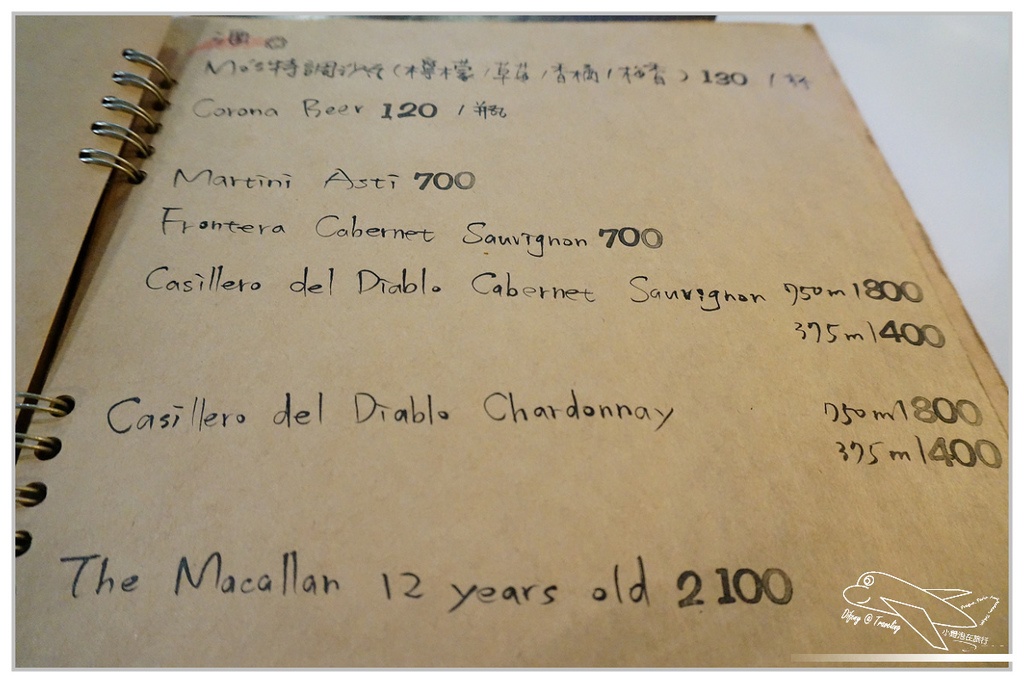 酒
Mo's特調沙瓦(檸檬/草莓/香橘/柚香) 130 /杯
Corona Beer 120 /瓶
Martini Asti 700
Frontera Cabernet Sauvignon 700
Casillero del Diablo Cabernet Sauvignon 750ml 800
375ml 400
Casillero del Diablo Chardonnay 750ml 800
375ml 400
The Macallan 12 years old 2100
Difeny @ Traveling
小醬泡在旅行